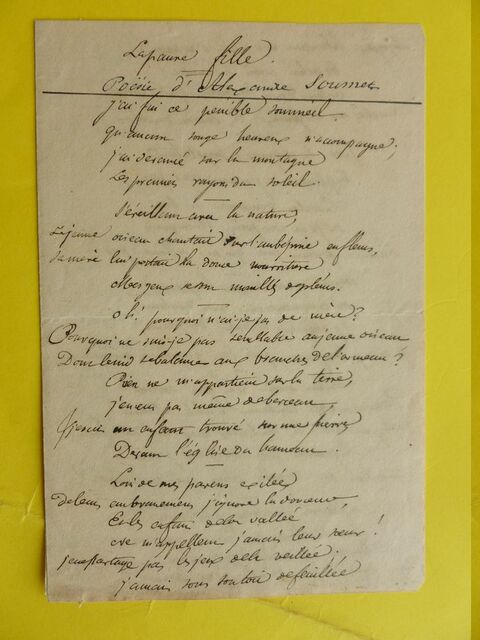 La pauvre fille.
Poésie d'Alexandre Soumet
j'ai fui ce penible sommeil
qu'aucun songe heureux n'accompagne,
j'ai devancé sur la montagne
Les premiers rayons du soleil.
S'éveillant avec la nature,
Le jeune oiseau chantait sur l'aubépine en fleurs,
Sa mère lui portait la douce nourriture
Mes yeux se sont mouillés de pleurs.
oh! pourquoi n'ai-je pas de mère?
Pourquoi ne suis-je pas semblable au jeune oiseau
Dont le nid se balance aux branches de l'ormeau?
Rien ne m'appartient sur la terre,
j'eneus pas même de berceau
Et je suis un enfant trouvé sur une pierre
Devant l'église du hameau.
Loin de mes parens exilée
De leurs embrassemens j'ignore la douceur,
Et les enfans de la vallée
Ne m'appellent jamais leur sœur!
je ne partage pas les jeux de la veillée;
jamais sous son toit de feuillée